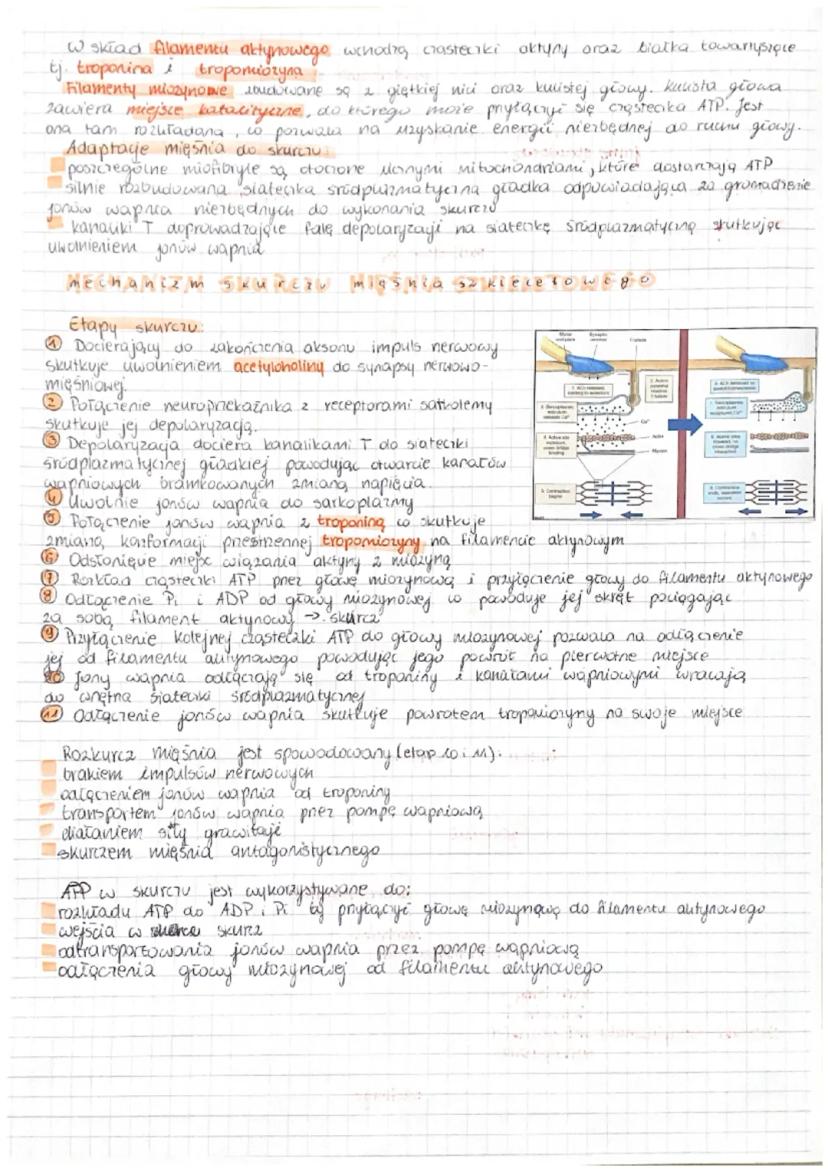 W skład filamentu aktynowego wchodzą cząsteczki aktyny oraz białka towarzyszące
tj. troponina i tropomiozyna
Filamenty miozynowe zbudowane są z giętkiej nici oraz kulistej głowy. Kulista głowa
zawiera miejsce katalityczne, do którego może przyłączyć się cząsteczka ATP. Jest
ona tam rozkładana, co pozwala na uzyskanie energii niezbędnej do ruchu głowy.
Adaptacje mięśnia do skurczu:
poszczególne miofibryle są otoczone licznymi mitochondriami, które dostarczają ATP
silnie rozbudowana siateczka śródplazmatyczna gładka odpowiadająca za gromadzenie
jonów wapnia niezbędnych do wykonania skurczu
kanaliki T doprowadzające falę depolaryzacji na siateczkę śródplazmatyczną skutkując
uwolnieniem jonów wapnia
mechanizm skurczu mięśnia szkieletowego
Etapy skurczu:
1 Docierający do zakończenia aksonu impuls nerwowy
skutkuje uwolnieniem acetylocholiny do synapsy nerwowo-
mięśniowej.
2 Połączenie neuroprzekaźnika z receptorami sarkolemy
skutkuje jej depolaryzacją.
3 Depolaryzacja dociera kanalikami T do siateczki
śródplazmatycznej gładkiej powodując otwarcie kanałów
wapniowych bramkowanych zmianą napięcia.
4 Uwolnie jonów wapnia do sarkoplazmy
5 Połączenie jonów wapnia z troponiną co skutkuje
zmianą konformacji przestrzennej tropomiozyny na filamencie aktynowym
6 Odsłonięcie miejsc wiązania aktyny z miozyną
7 Rozkład cząsteczki ATP przez głowę miozynową i przyłączenie głowy do filamentu aktynowego
8 Odłączenie Pi i ADP od głowy miozynowej co powoduje jej skręt pociągając
za sobą filament aktynowy → skurcz
9 Przyłączenie kolejnej cząsteczki ATP do głowy miozynowej pozwala na odłączenie
jej od filamentu aktynowego powodując jego powrót na pierwotne miejsce
10 Jony wapnia odłączają się od troponiny i kanałami wapniowymi wracają
do wnętrza siateczki śródplazmatycznej
11 Odłączenie jonów wapnia skutkuje powrotem tropomiozyny na swoje miejsce
Rozkurcz mięśnia jest spowodowany (etap 10 i 11):
brakiem impulsów nerwowych
odłączeniem jonów wapnia od troponiny
transportem jonów wapnia przez pompę wapniową
działaniem siły grawitacji
skurczem mięśnia antagonistycznego
ATP w skurczu jest wykorzystywane do:
rozkładu ATP do ADP i Pi by przyłączyć głowę miozynową do filamentu aktynowego
wejścia w skurcz
odtransportowania jonów wapnia przez pompę wapniową
odłączenia głowy miozynowej od filamentu aktynowego